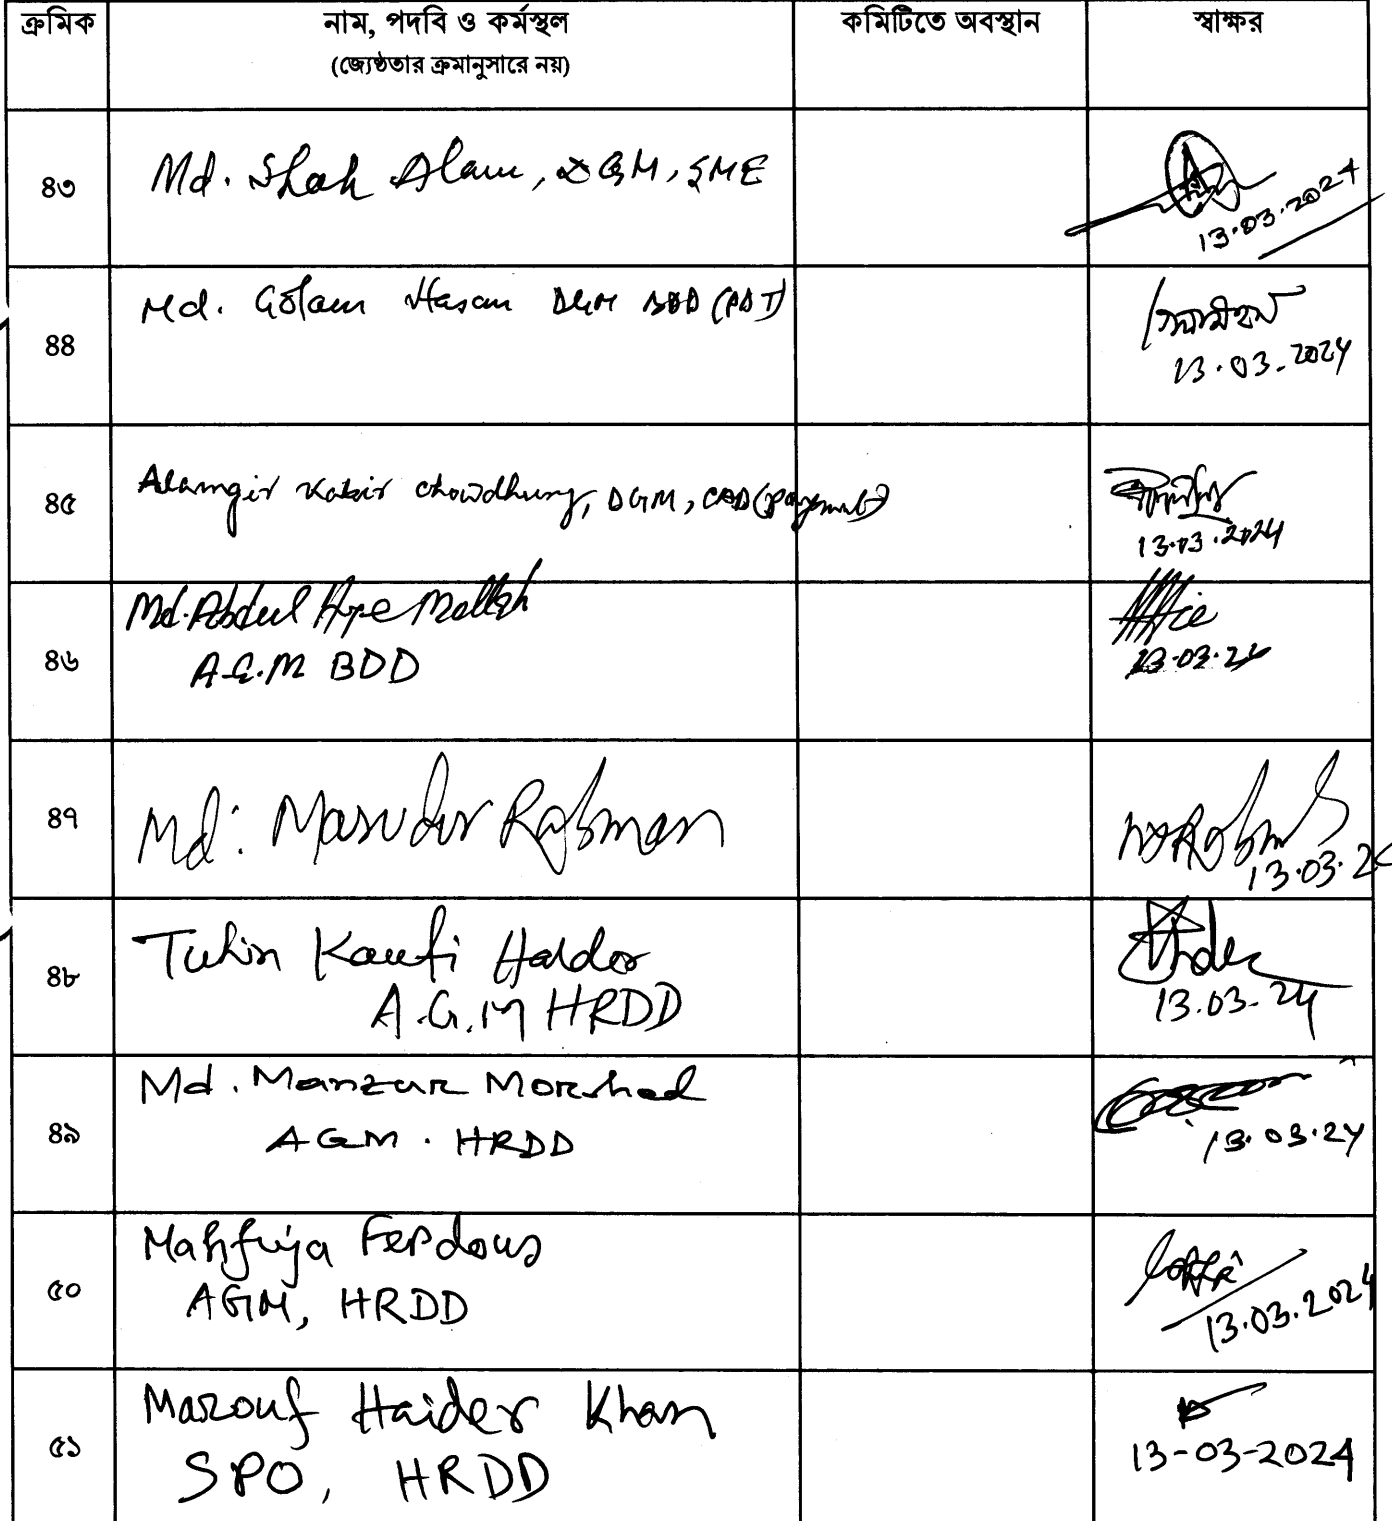 ক্রমিক নাম, পদবি ও কর্মস্থল কমিটিতে অবস্থান স্বাক্ষর
(জ্যেষ্ঠতার ক্রমানুসারে নয়)
৪৩ Md. Shah Alam, DGM, SME
13.03.2024
৪৪ Md. Golam Hasan DGM BDD (PDT)
13.03.2024
৪৫ Alamgir Kabir Chowdhury, DGM, CAD (payment)
13.03.2024
Md. Abdul Hye Mollah
৪৬ A.G.M BDD
13.03.24
৪৭ Md: Masudur Rahman
13.03.2
Tuhin Kanti Halder
৪৮ A.G.M HRDD
13.03.24
Md. Manzur Morshed
৪৯ AGM. HRDD
13.03.24
Mahfuja Ferdous
৫০ AGM, HRDD
13.03.2024
Marouf Haider Khan
৫১ SPO, HRDD
13-03-2024